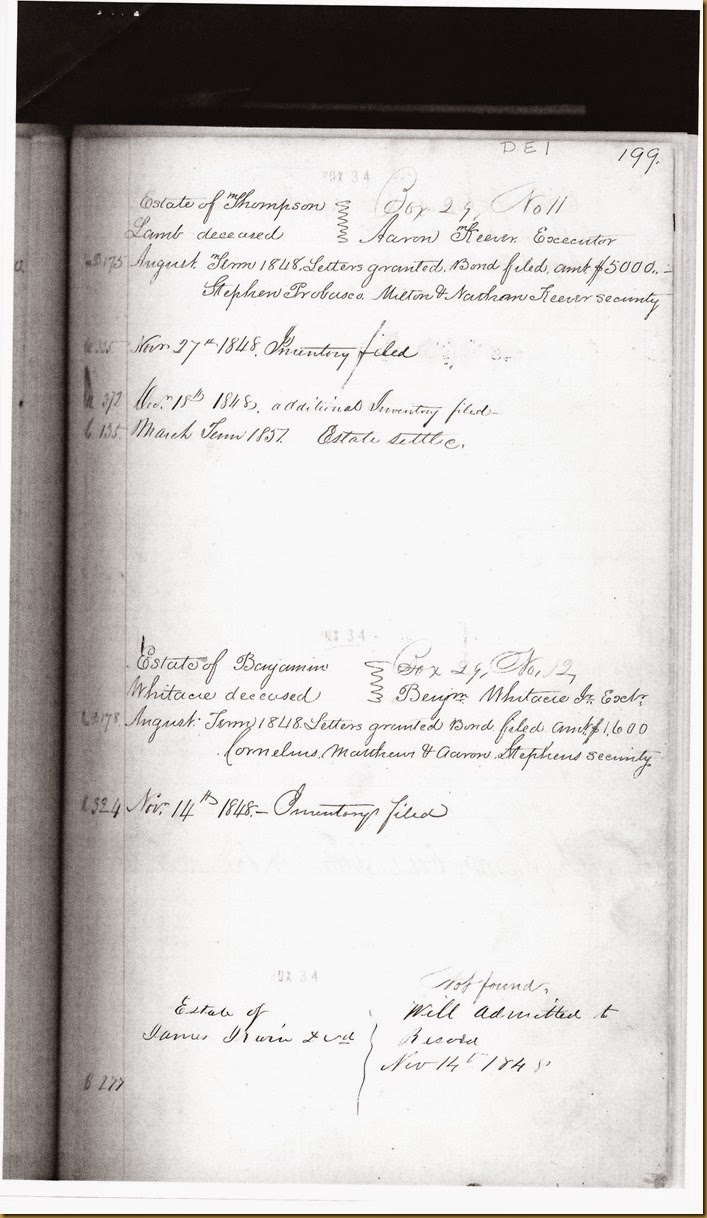 DE1
199.
Estate of Thompson Box 29, No 11
Lamb deceased Aaron Keever Executor
175 August Term 1848. Letters granted. Bond filed, amt $5000.–
Stephen Probasco Milton & Nathan Keever security
Nov. 27th 1848. Inventory filed
372 Dec. 18th 1848, additional Inventory filed–
135 March Term 1851. Estate settle.
Estate of Benjamin Box 29, No, 12,
Whitacre deceased Benjn. Whitacre Jr. Exctr.
178 August Term 1848. Letters granted Bond filed amt $1,600
Cornelius, Matthew & Aaron Stephens security
324 Nov. 14th 1848.– Inventory filed
Not found,
Estate of Will Admitted to
James Irwin decd Record
Nov 14th 1848
277